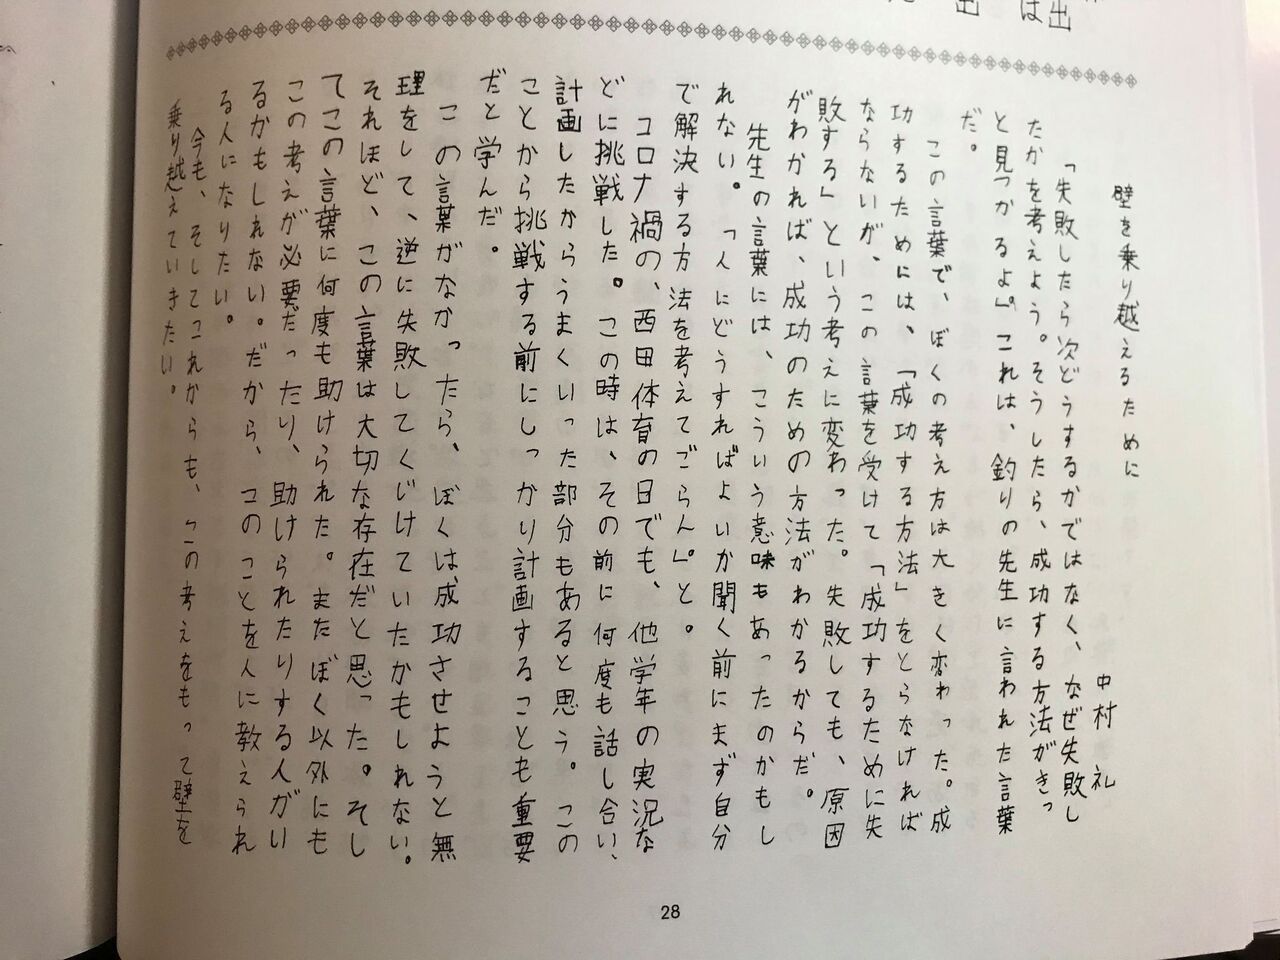 壁を乗り越えるために
中村　礼
「失敗したら次どうするかではなく、なぜ失敗し
たかを考えよう。そうしたら、成功する方法がきっ
と見つかるよ」。これは、釣りの先生に言われた言葉
だ。
この言葉で、ぼくの考え方は大きく変わった。成
功するためには、「成功する方法」をとらなければ
ならないが、この言葉を受けて「成功するために失
敗する」という考えに変わった。失敗しても、原因
がわかれば、成功のための方法がわかるからだ。
先生の言葉には、こういう意味もあったのかもし
れない。「人にどうすればよいか聞く前にまず自分
で解決する方法を考えてごらん」と。
コロナ禍の、西田体育の日でも、他学年の実況な
どに挑戦した。この時は、その前に何度も話し合い、
計画したからうまくいった部分もあると思う。この
ことから挑戦する前にしっかり計画することも重要
だと学んだ。
この言葉がなかったら、ぼくは成功させようと無
理をして、逆に失敗してくじけていたかもしれない。
それほど、この言葉は大切な存在だと思った。そし
てこの言葉に何度も助けられた。またぼく以外にも
この考えが必要だったり、助けられたりする人がい
るかもしれない。だから、このことを人に教えられ
る人になりたい。
今も、そしてこれからも、この考えをもって壁を
乗り越えていきたい。
28